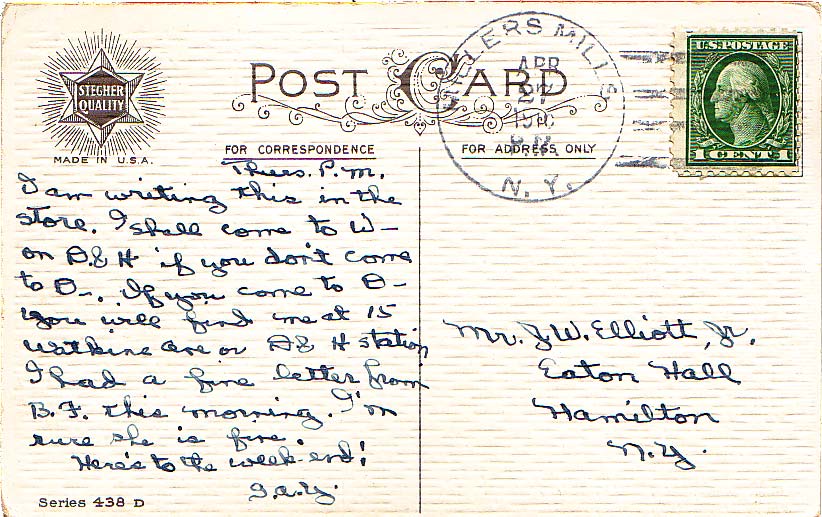 STEGHER
QUALITY
MADE IN U.S.A.
POST CARD
FOR CORRESPONDENCE
FOR ADDRESS ONLY
MILLS
APR
27
N. Y.
U.S. POSTAGE
1 CENT 1
Thurs. P.M.
I am writing this in the
store. I shall come to W—
on D.& H if you don't come
to O—. If you come to O—
you will find me at 15
Watkins ave or D & H station
I had a fine letter from
B.F. this morning. I'm
sure she is fine.
Here's to the week-end!
Mr. J.W. Elliott, Jr.
Eaton Hall
Hamilton
N.Y.
Series 438 D